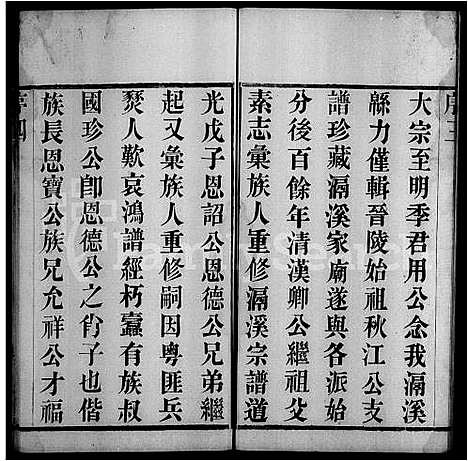 序三
大宗至明季君用公念我滆溪
緜力僅輯晉陵始祖秋江公支
譜珍藏滆溪家廟遂與各派始
分後百餘年清漢卿公繼祖父
素志彙族人重修滆溪宗譜道
光戊子恩詔公恩德公兄弟繼
起又彙族人重修嗣因粵匪兵
燹人歎哀鴻譜經朽蠹有族叔
國珍公卽恩德公之肖子也偕
族長恩寶公族兄允祥公才福
序四